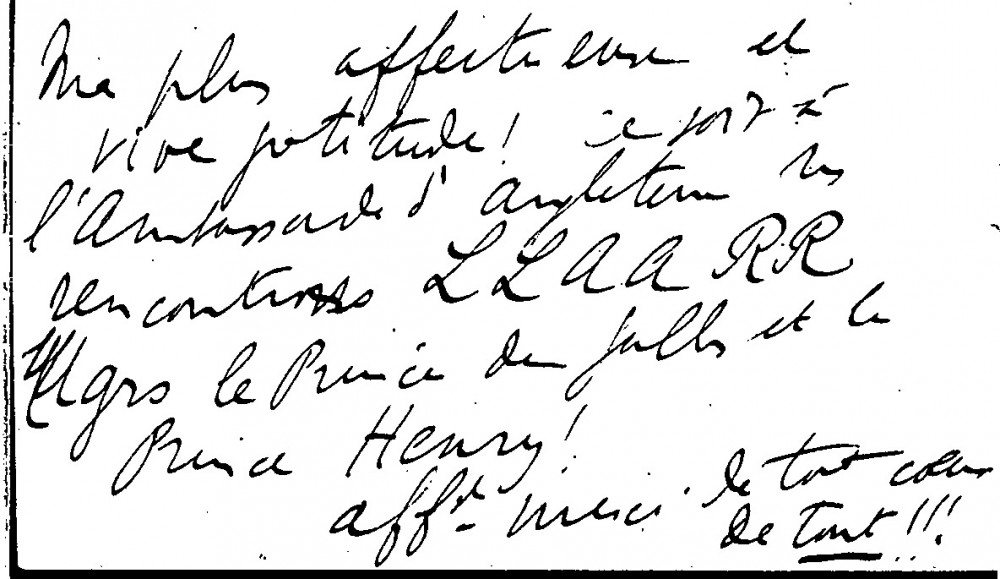 Ma plus affectueuse et
vive gratitude! ce soir à
l'Ambassade d'Angleterre ns
rencontrons LLAARR
Mgrs le Prince de Galles et le
Prince Henry!
afft merci de tout cœur
de tout!!!